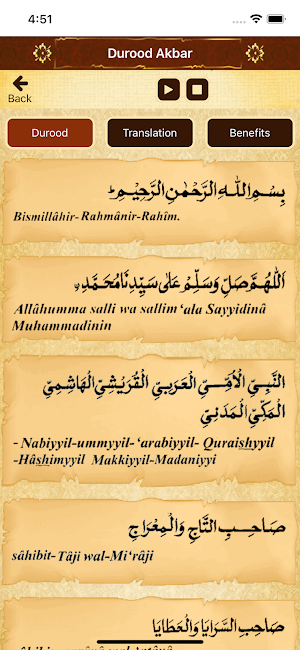 4:51
Durood Akbar
Back
Durood
Translation
Benefits
بِسْمِ اللّٰهِ الرَّحْمٰنِ الرَّحِيْمِ ؕ
Bismillâhir-Rahmânir-Rahîm.
اَللّٰهُمَّ صَلِّ وَسَلِّمْ عَلٰی سَيِّدِنَا مُحَمَّدِ ۣ
Allâhumma salli wa sallim ‘ala Sayyidinâ
Muhammadinin
النَّبِيِّ الْاُمِّيِّ الْعَرَبِيِّ الْقُرَيْشِيِّ الْهَاشِمِيِّ
الْمَكِّيِّ الْمَدَنِيِّ
- Nabiyyil-ummyyil-‘arabiyyil- Quraishyyil
-Hâshimyyil Makkiyyil-Madaniyyi
صَاحِبِ التَّاجِ وَالْمِعْرَاجِ
sâhibit-Tâji wal-Mi‘râji
صَاحِبِ السَّرَايَا وَالْعَطَايَا